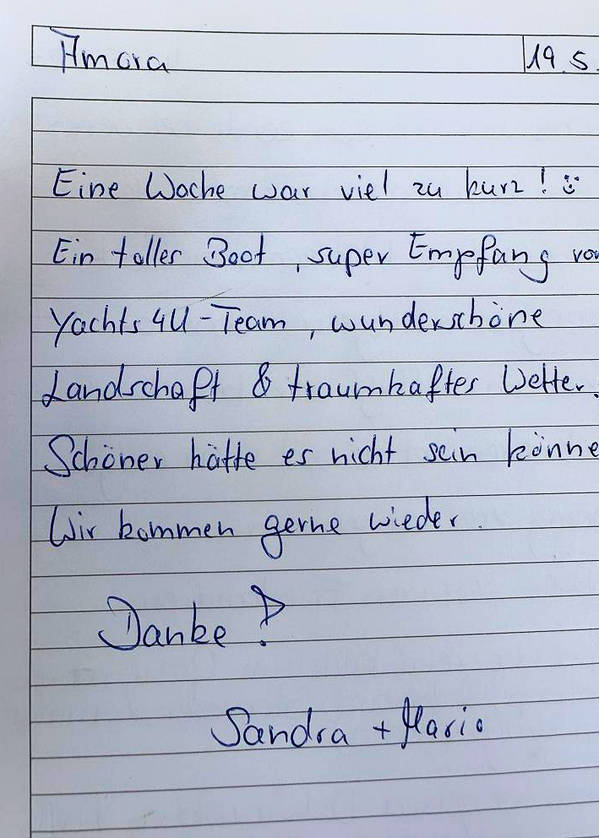 Amara 19.5.
Eine Woche war viel zu kurz! :)
Ein toller Boot, super Empfang vo
Yachts4U-Team, wunderschöne
Landschaft & traumhaftes Wetter.
Schöner hätte es nicht sein könne
Wir kommen gerne wieder.
Danke!
Sandra + Mario